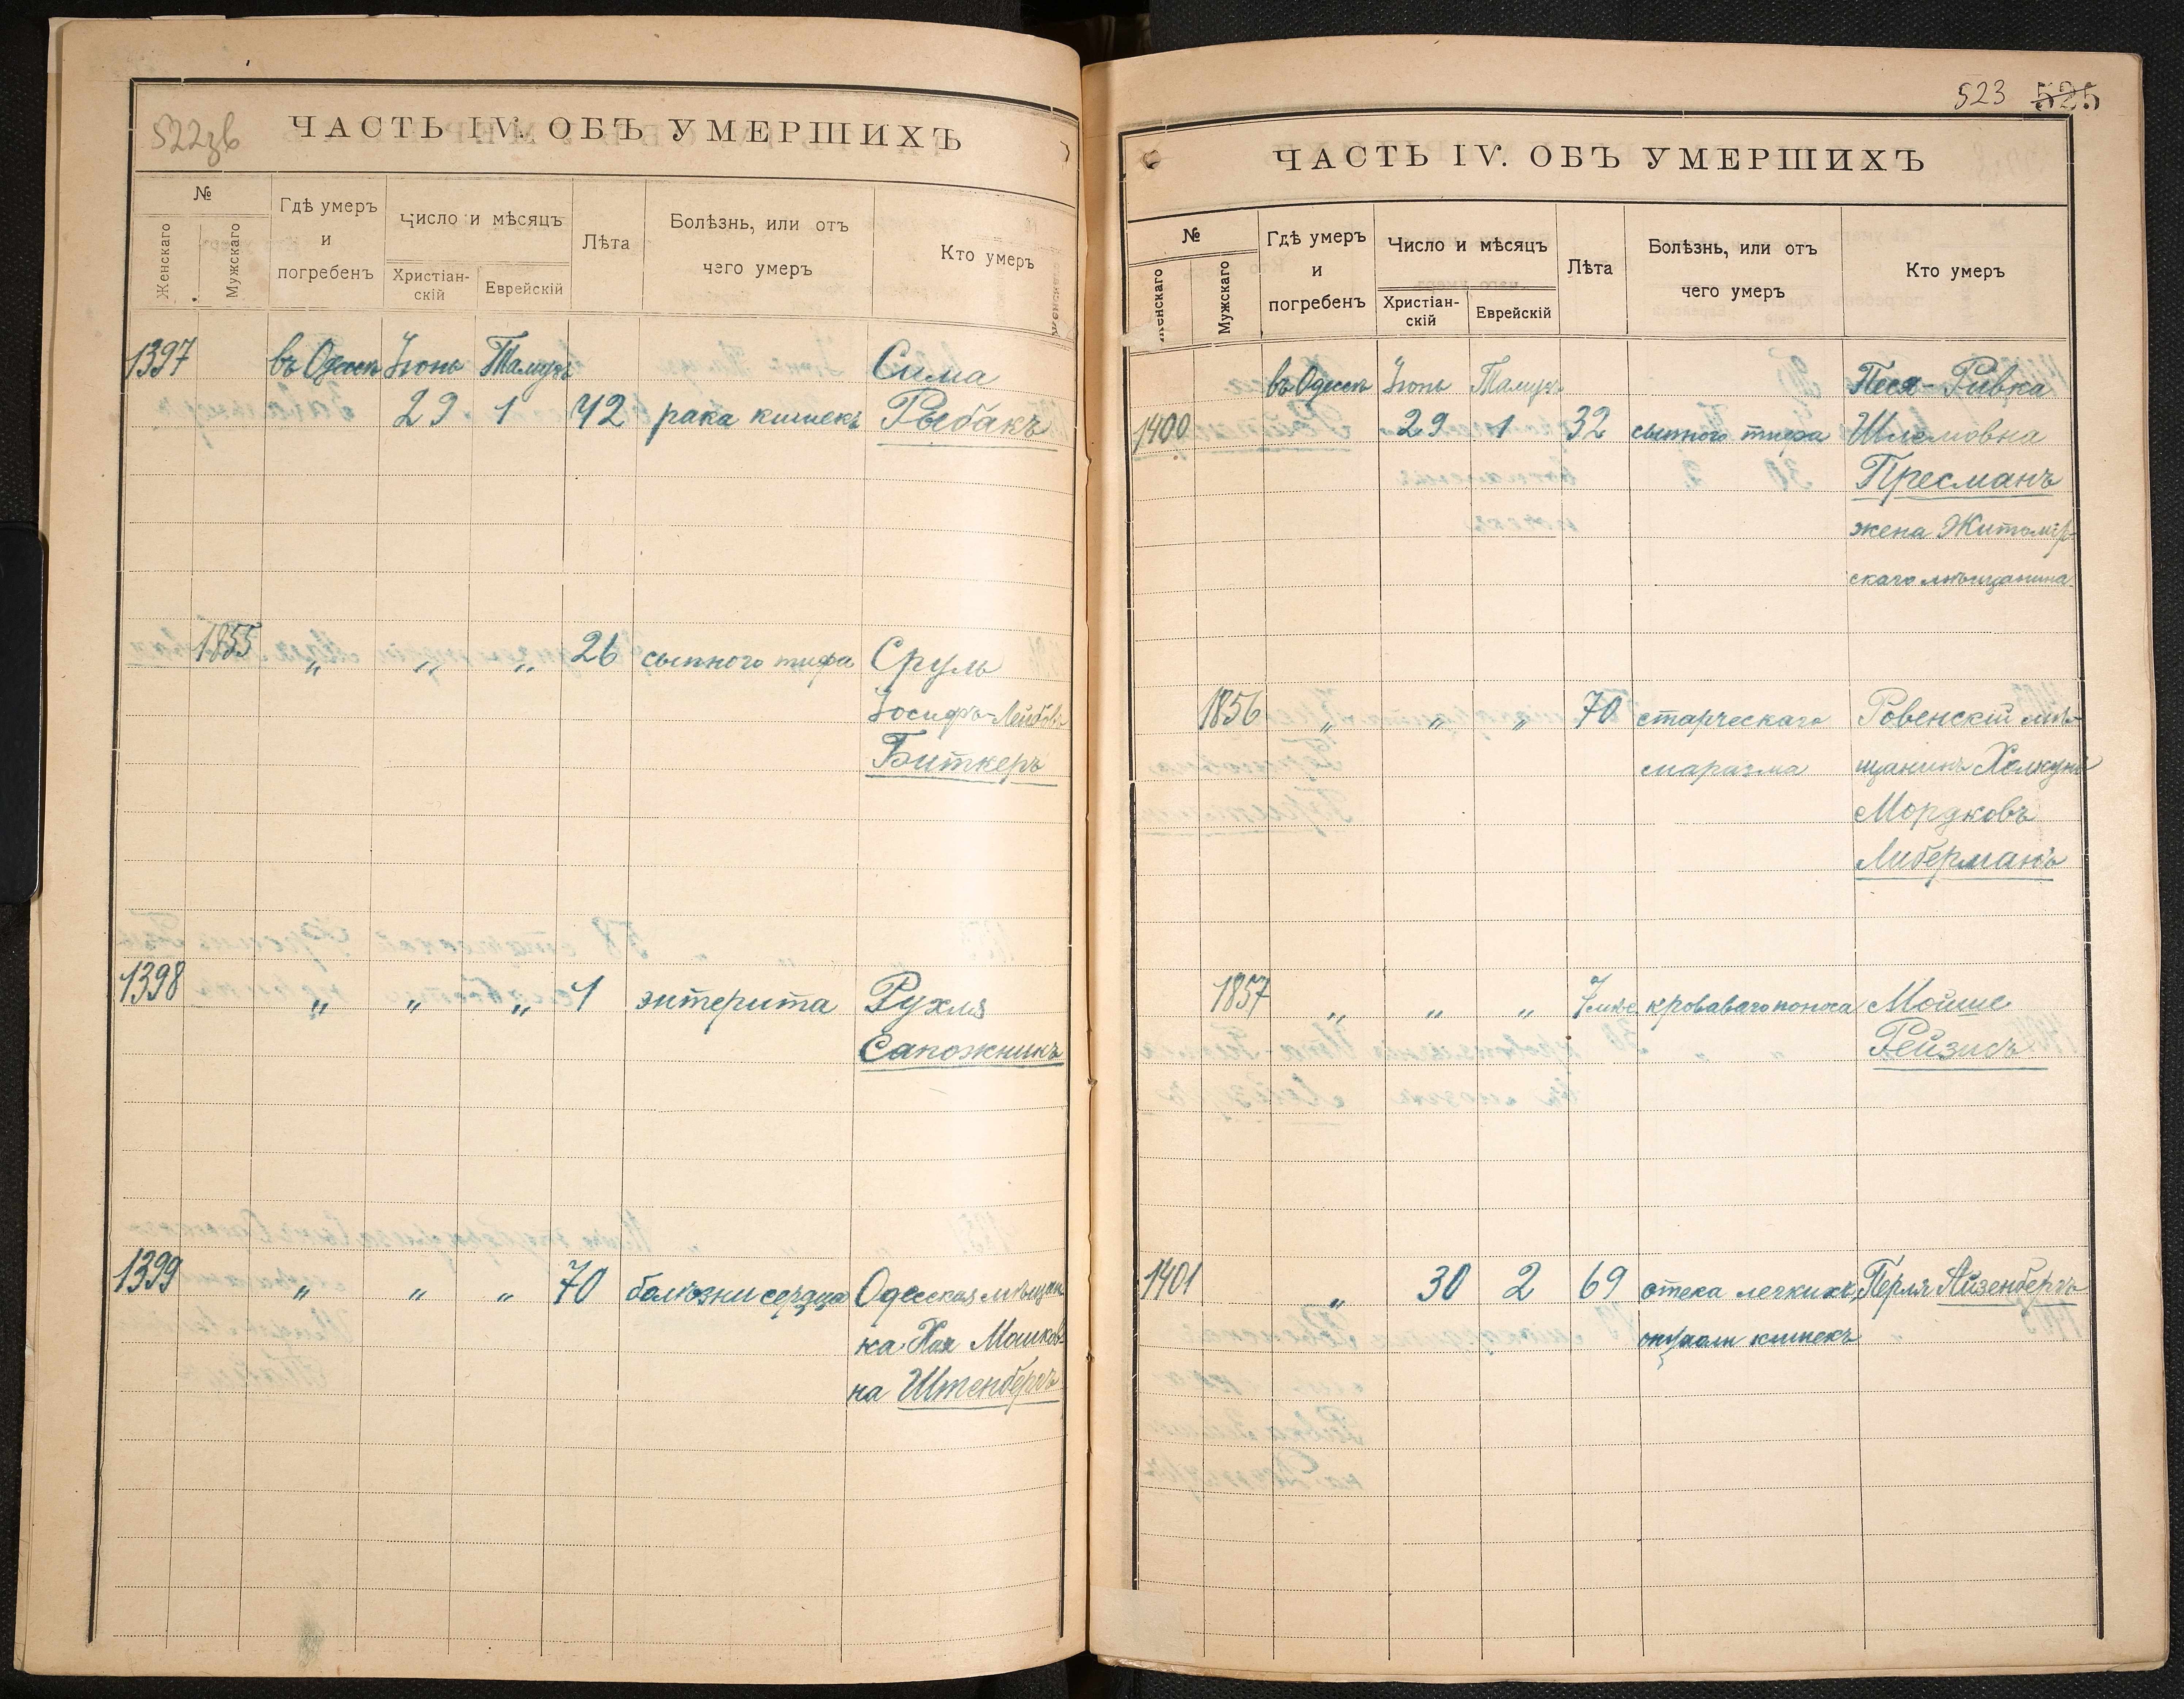 522зв
ЧАСТЬ IV. ОБЪ УМЕРШИХЪ
№
Женскаго
Мужскаго
Гдѣ умеръ
и
погребенъ
Число и мѣсяцъ
Христіан-
скій
Еврейскій
Лѣта
Болѣзнь, или отъ
чего умеръ
Кто умеръ
1397 въ Одессѣ Іюнь Тамузъ Сима
29 1 42 рака кишекъ Рыбакъ
1855 „ „ „ 26 сыпного тифа Сруль
Іосифъ-Лейбовъ
Биткеръ
1398 „ „ „ 1 энтерита Рухля
Сапожникъ
1399 „ „ „ 70 болѣзни сердца Одесская мѣщан
ка Хая Мошков
на Штенбергъ
523 525
ЧАСТЬ IV. ОБЪ УМЕРШИХЪ
№
Женскаго
Мужскаго
Гдѣ умеръ
и
погребенъ
Число и мѣсяцъ
Христіан-
скій
Еврейскій
Лѣта
Болѣзнь, или отъ
чего умеръ
Кто умеръ
въ Одессѣ Іюнь Тамузъ Песя-Ривка
1400 29 1 32 сыпного тифа Шлемовна
Пресманъ
жена Житомір-
скаго мѣщанина
1856 „ „ „ 70 старческаго Ровенскій мѣ-
маразма щанинъ
Мордковъ
Либерманъ
1857 „ „ „ 7 мѣс кроваваго поноса Мойше
Рейзисъ
1401 „ 30 2 69 отека легкихъ, Перля Айзенбергъ
кишекъ